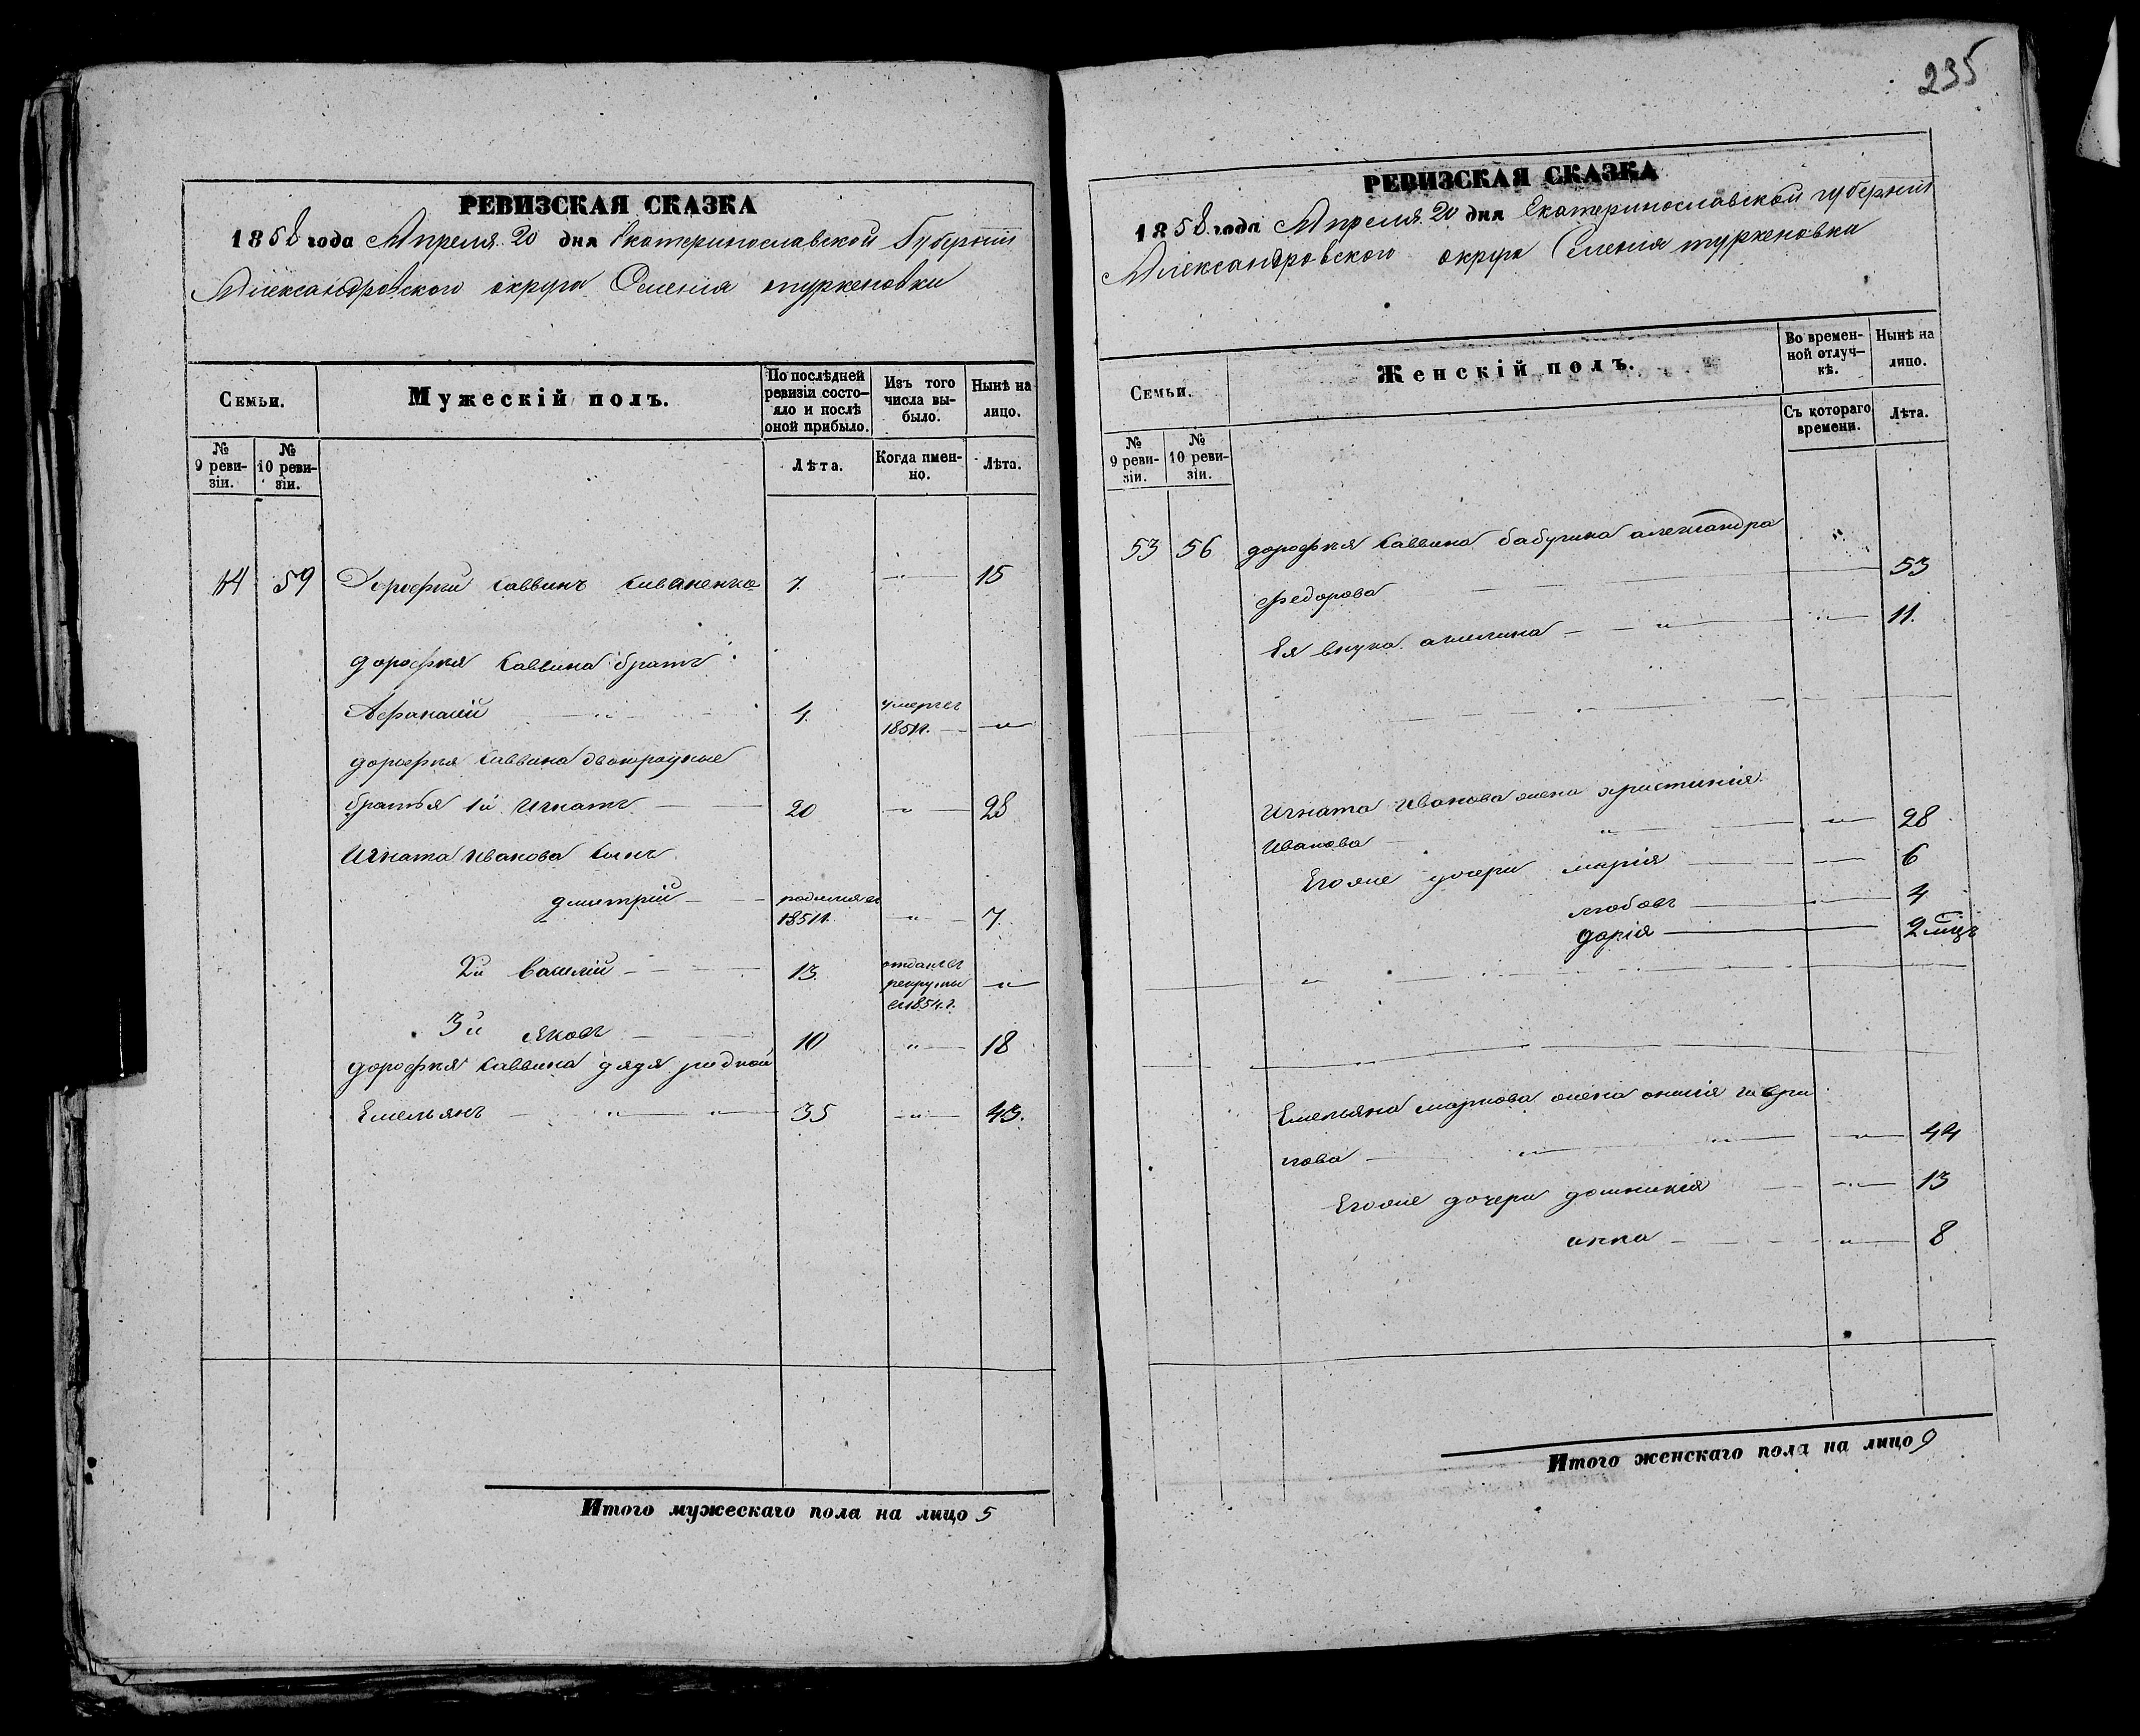 РЕВИЗСКАЯ СКАЗКА
1858 года Апреля 20 дня Екатеринославской Губернiи
Александровского округа Селенiя туркеновки
Семьи. Мужескiй полъ. По послѣдней ревизiи состояло и послѣ оной прибыло. Изъ того числа выбыло. Нынѣ на лицо.
№ 9 ревизiи. № 10 ревизiи. Лѣта. Когда имен-но. Лѣта.
59 Дорофѣй Саввинъ 7. 15
дорофѣя Саввина братъ
Афанасiй 4. умеръ въ 1851г.
дорофѣя Саввина двоюродные
братья 1й Игнатъ 20 28
Игната Иванова сынъ
дмитрiй родился въ 1851г. 7.
2й василiй 13. отданъ въ рекруты въ 1854.г.
3й Яковъ 10 18
дорофѣя Саввина дядя родной
Емельянъ 35 43.
Итого мужескаго пола на лицо 5
235
РЕВИЗСКАЯ СКАЗКА
1858 года Апреля 20 дня Екатеринославской губернiи
Александровского округа Селенiя туркеновки
Семьи. Женскiй полъ. Во времен-ной отлуч-кѣ. Нынѣ на лицо.
№ 9 ревизiи. № 10 ревизiи. Съ котораго времени. Лѣта.
53 56 дорофѣя Саввина бабушка александра
Федорова 53
Ея внука акилина 11.
Игната Иванова жена христинiя
Иванова 28
Его же дочери марiя 6
любовь 4
дарiя 2 мцъ
Емельяна маркова жена гаври
лова 44
Его же дочери домникiя 13
анна 8
Итого женскаго пола на лицо 9